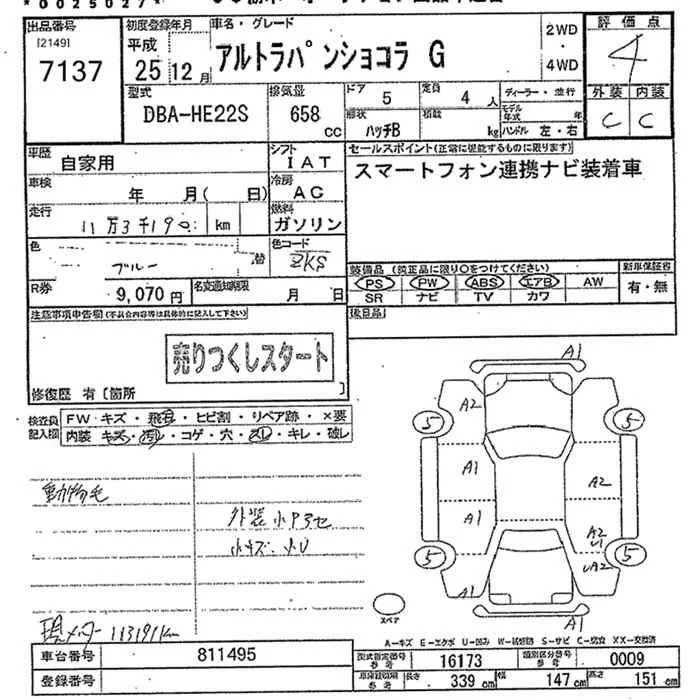 *0025027*
出品番号 初度登録年月 車名・グレード 2WD・4WD 評価点
[2149]
7137
平成25 12月
アルトラパンショコラ G
4
型式 排気量 ドア 5 定員 4人 ディーラー・並行 外装 内装
DBA-HE22S 658cc 形状 ハッチB 積載 kg モデル年式 年 ハンドル 左・右 C C
車歴 自家用 シフト IAT セールスポイント(正常に堪能するものに限ります)
車検 年 月( 日) 冷房 AC スマートフォン連携ナビ装着車
走行 km 燃料 ガソリン
色 ブルー 替 色コード ZKS
装備品 (純正品に限り○をつけてください) 新車保証書
R券 9,070円 名変通知期限 月 日 PS PW ABS エアB AW 有・無
SR ナビ TV カワ
注意事項申告欄(不具合内容等は具体的に記入して下さい) 後日品
売りつくしスタート
修復歴 有〔箇所 〕
検査員記入欄 FW キズ・飛石・ヒビ割・リペア跡・×要
内装 キズ・汚レ・コゲ・穴・スレ・キレ・破レ
動物毛
外装小P3セ
小キズ・小U
現メーター 113191km
A1
A2
5 5
A1 A2
A1 A2
U1
5 5
UA2
A1
A1
スペア
A-キズ E-エクボ U-凹み W-補修跡 S-サビ C-腐食 XX-交換済
車台番号 811495 型式指定番号 参考 16173 類別区分番号 参考 0009
登録番号 車庫証明用 参考 長さ 339cm 幅 147cm 高さ 151cm